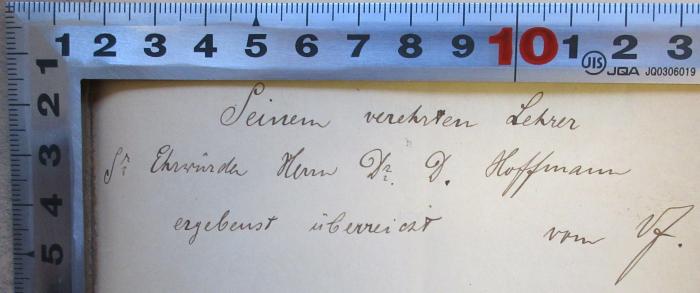 1 2 3 4 5 6 7 8 9 10 1 2 3
JIS JQA JQ0306019
1
2
3
4
5
Seinem verehrten Lehrer
Sr Ehrwürden Herrn Dr. D. Hoffmann
ergebenst überreicht
vom Vf.